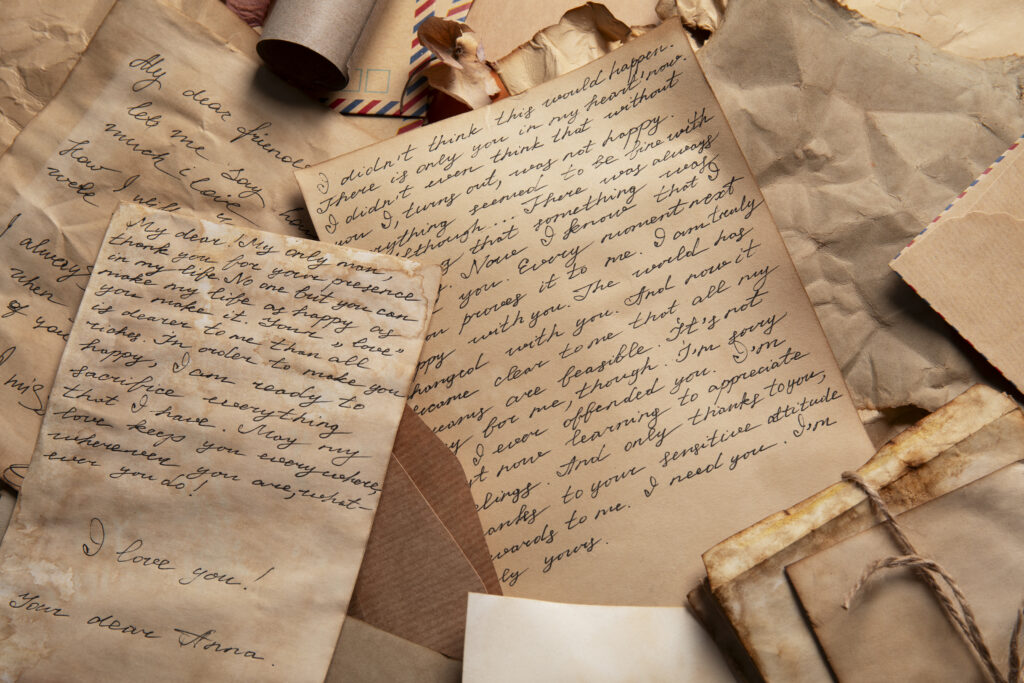 My dear friend
let me say
much i love
how I
were
I always
when
of you
I mis
My dear! My only man,
thank you for your presence
in my life. No one but you can
make my life as happy as
you make it. Your "love"
is dearer to me than all
riches. In order to make you
happy, I am ready to
sacrifice everything
that I have. May my
love keeps you everywhere,
wherever you are, what-
ever you do!
I love you!
Your dear Anna.
I didn't think this would happen.
There is only you in my heart now.
I didn't even think that without
you I, turns out, was not happy.
erything seemed to be fine with
although... There was always
g that something was
Now I know that I
you. Every moment next
proves it to me. I am truly
ppy with you. The world has
hanged with you. And now it
ecame clear to me that all my
eams are feasible. It's not
y for me, though. I'm sorry
I ever offended you. I'm
t now learning to appreciate
elings. And only thanks to you,
anks to your sensitive attitude
wards to me. I need you. I'm
ly yours.